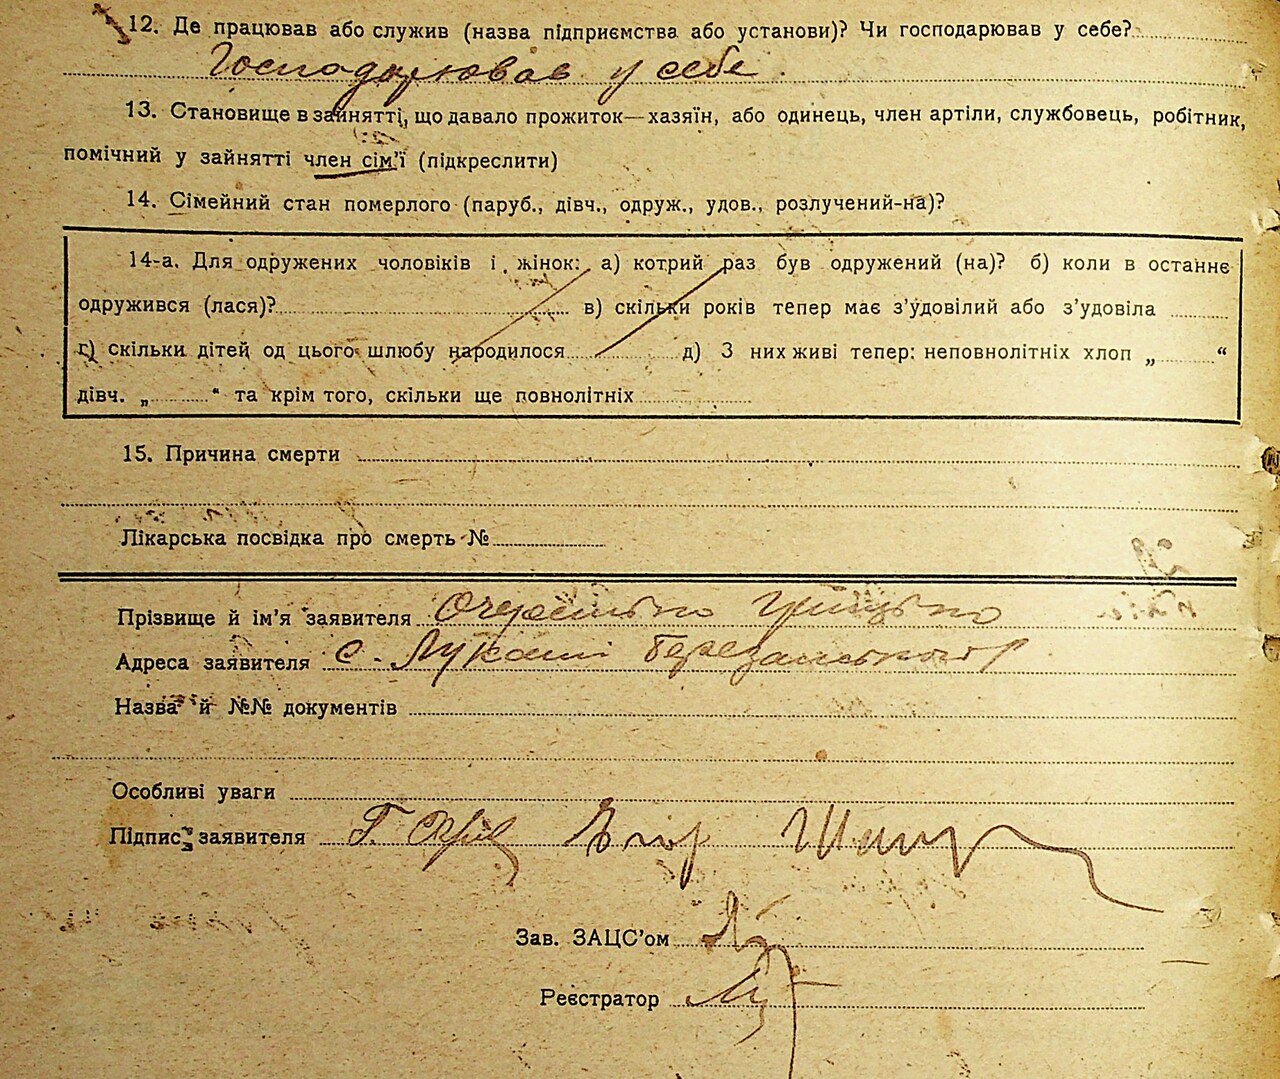 12. Де працював або служив (назва підприємства або установи)? Чи господарював у себе?
Господарював у себе.
13. Становище в зайнятті, що давало прожиток—хазяїн, або одинець, член артіли, службовець, робітник,
помічний у зайнятті член сім'ї (підкреслити)
14. Сімейний стан померлого (паруб., дівч., одруж., удов., розлучений-на)?
14-а. Для одружених чоловіків і жінок: а) котрий раз був одружений (на)? б) коли в останнє
одружився (лася)? в) скільки років тепер має з'удовілий або з'удовіла
г) скільки дітей од цього шлюбу народилося д) З них живі тепер: неповнолітніх хлоп „ “
дівч. „ “ та крім того, скільки ще повнолітніх
15. Причина смерти
Лікарська посвідка про смерть №
Прізвище й ім'я заявителя Грицько
Адреса заявителя с. Лукаші
Назва й №№ документів
Особливі уваги
Підпис заявителя Г.
Зав. ЗАЦС'ом
Реєстратор